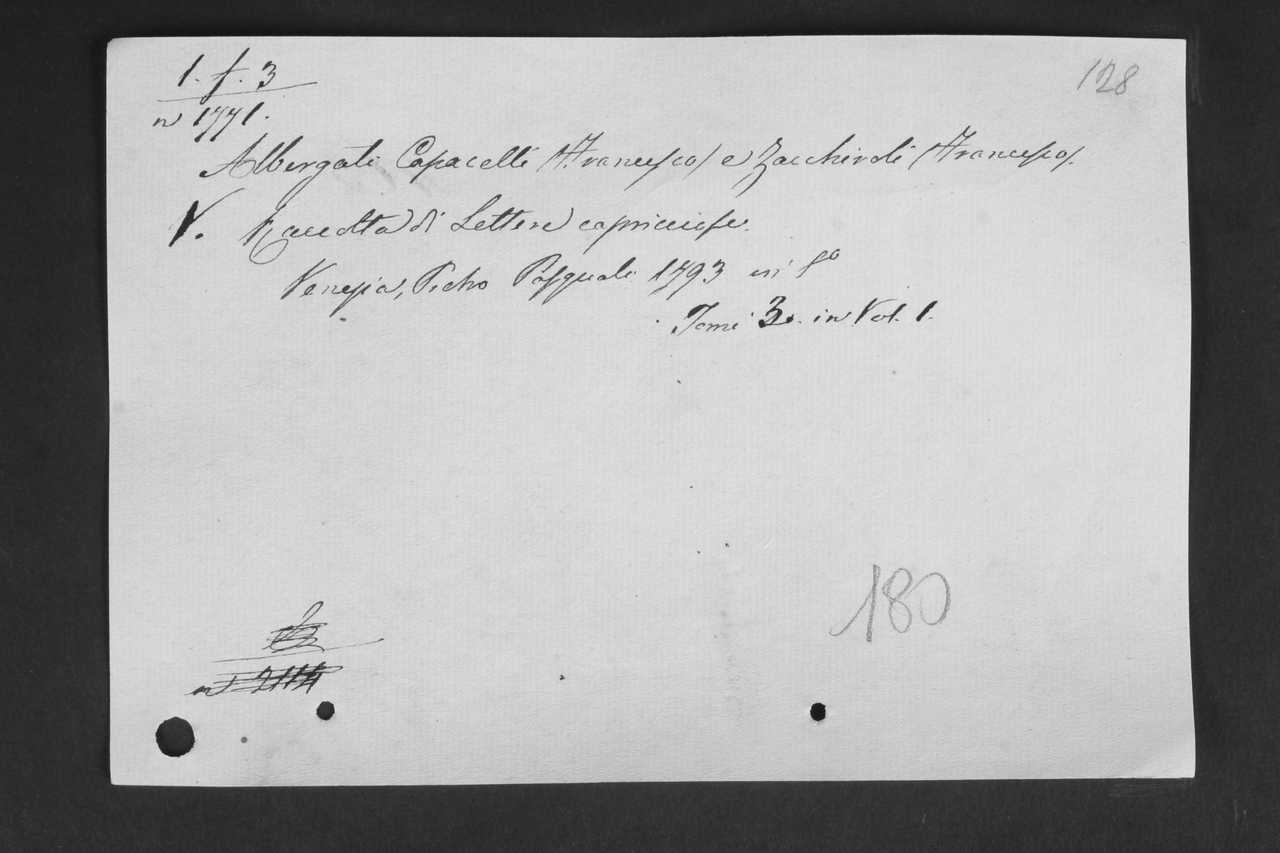 128
1. f. 3
n 1771.
Albergati Capacelli /Francesco/ e Zacchiroli /Francesco/.
V. Raccolta di Lettere capricciose.
Venezia, Pietro Pasquali 1793 in 8º
Tomi 3. in Vol. 1.
180
n 2114